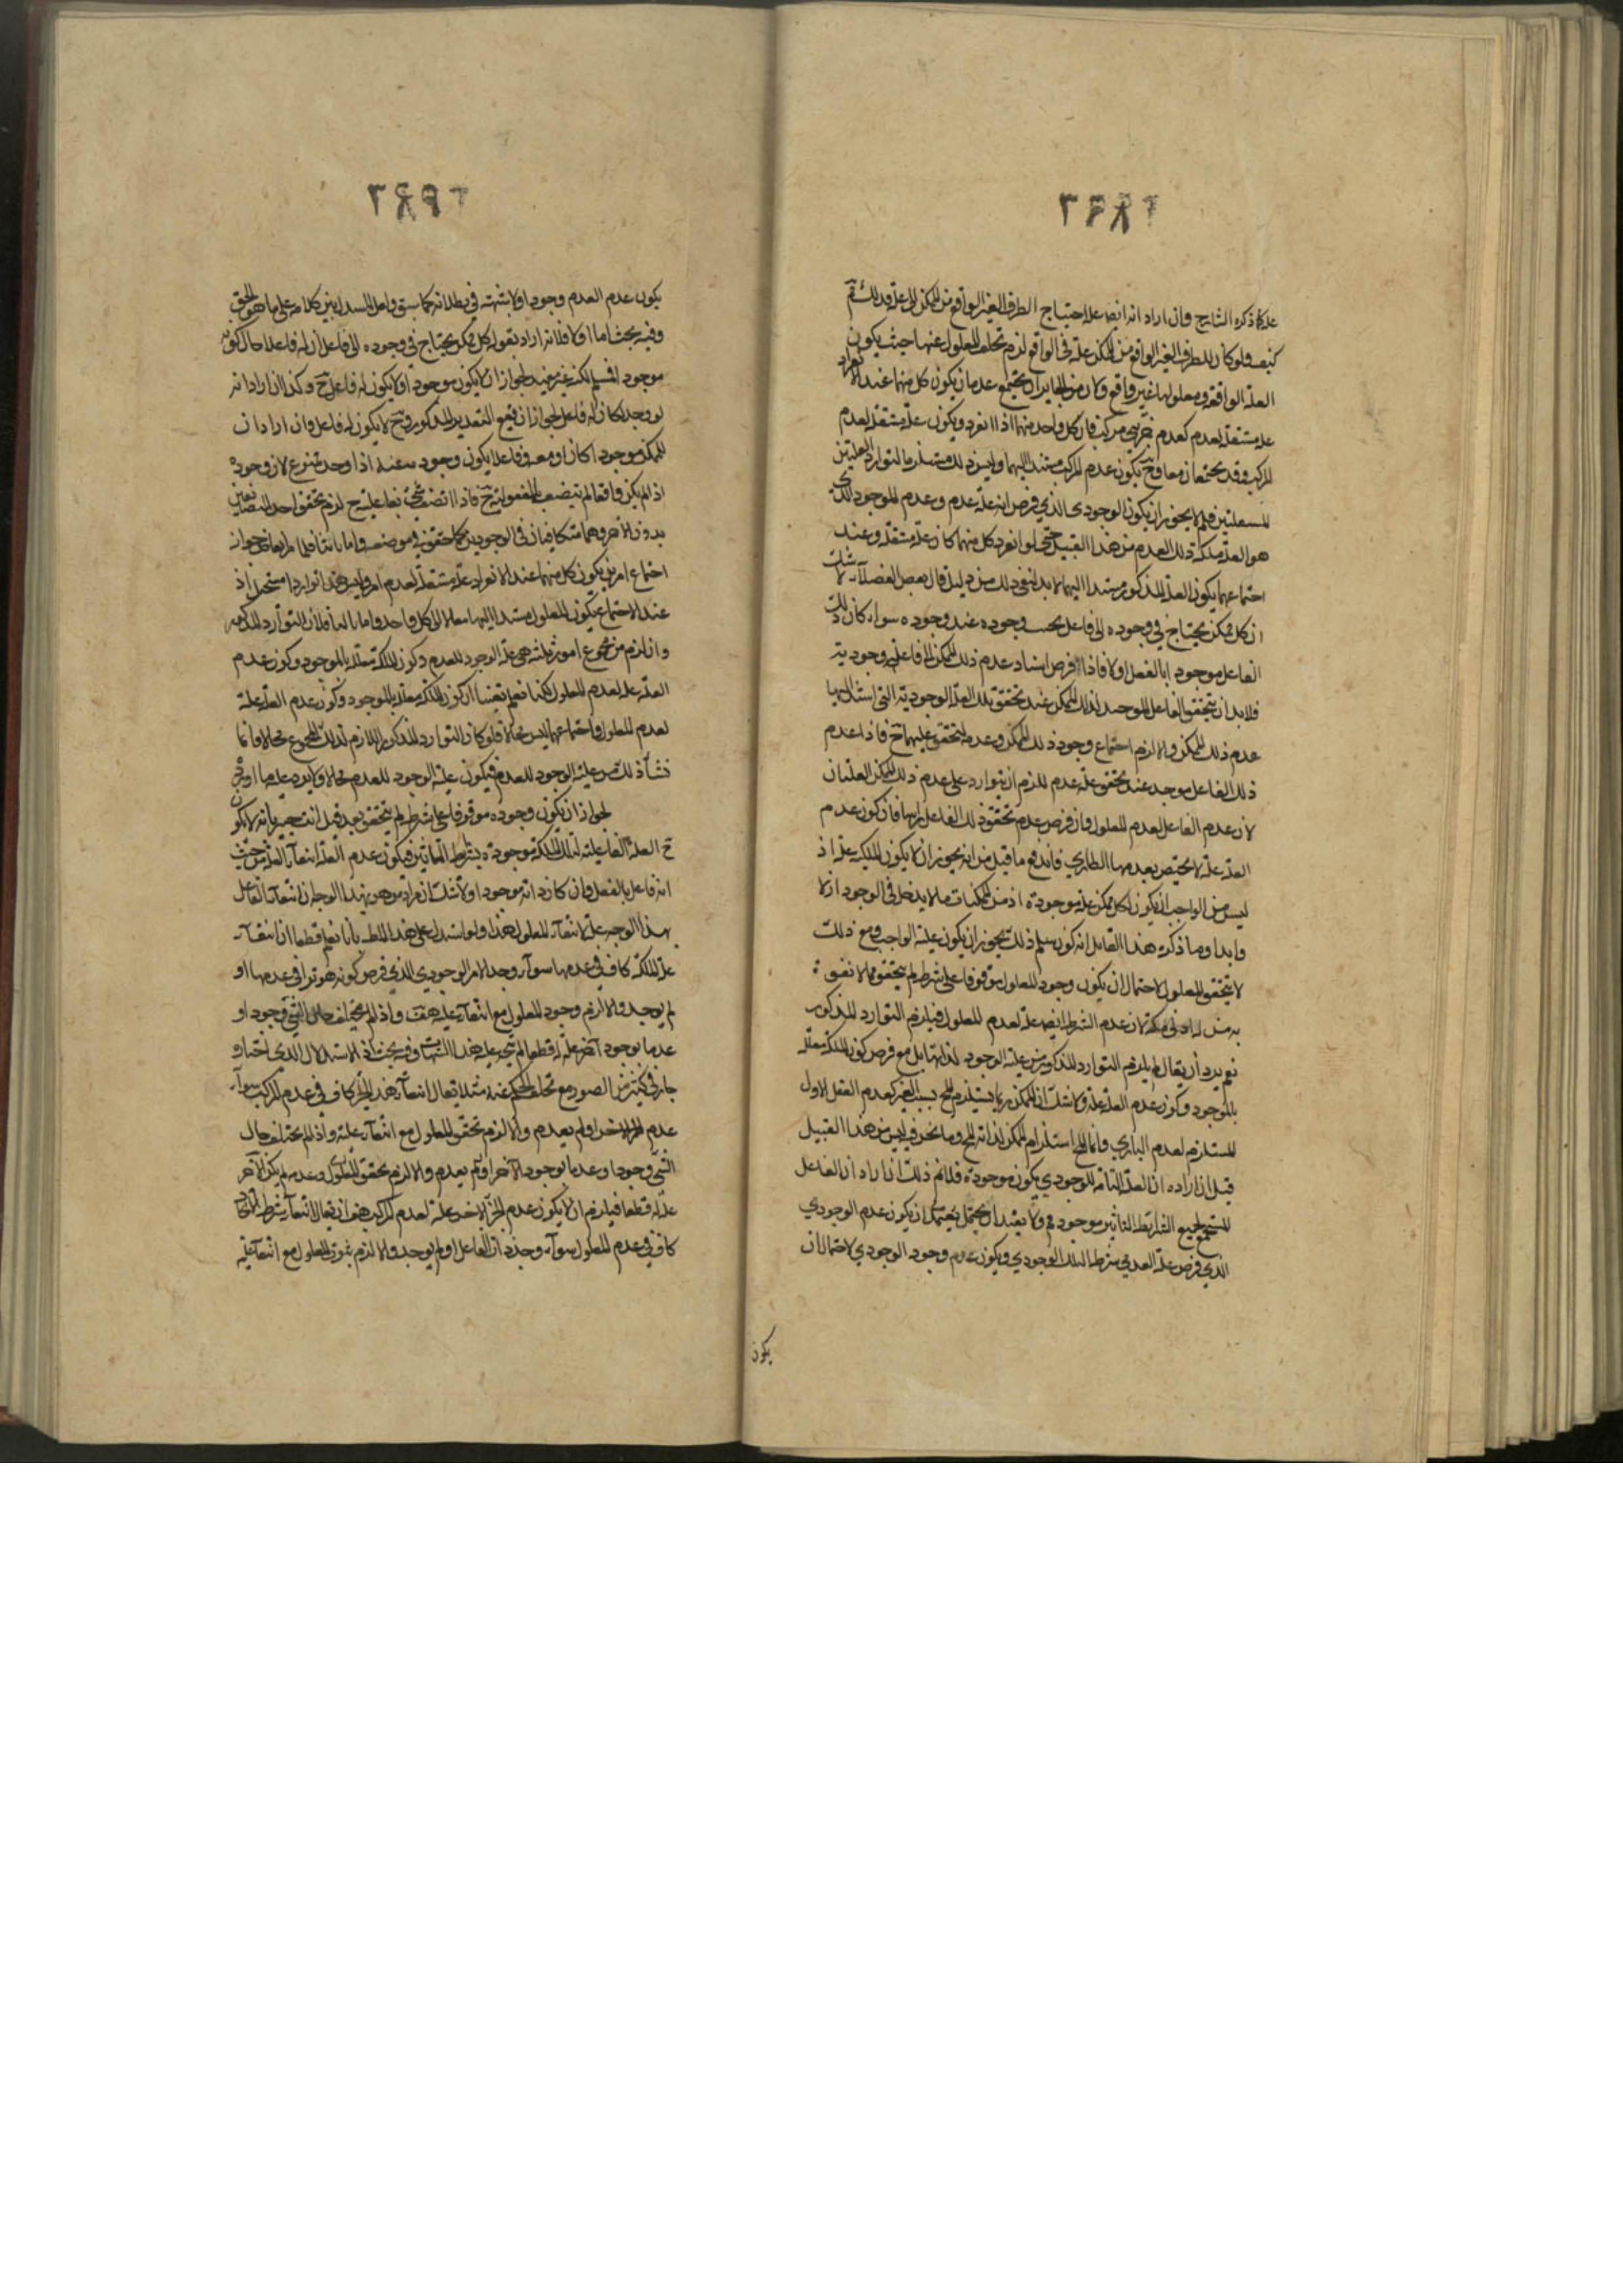 علة كما ذكره الشارح وان اراد انه ايضا علة احتياج الطرف الغير الواقع من الممكن الى علة فذلك ثم
كيف ولو كان للطرف الغير الواقع من الممكن علة في الواقع لزم تخلف المعلول عنها حيث يكون
العلة الواقعة ومعلولها غير واقع ولان من الجايز ان يجتمع عدمان يكون كل منهما عند الانفراد
علة مستقلة لعدم كعدم جزئي مركب فان كل واحد منهما اذا انفرد يكون علة مستقلة لعدم
المركب وقد يجتمعان معا وح يكون عدم المركب مستندا اليهما وليس ذلك مستلزما لتوارد العلتين
المستقلتين فلم لا يجوز ان يكون الوجودي الذي فرض انه علة عدم وعدم الموجود الذي
هو العلة لملكة ذلك العدم من هذا القبيل حتى لو انفرد كل منهما كان علة مستقلة وعند
اجتماعهما يكون العدم المذكور مستندا اليهما لا بد لنفي ذلك من دليل قال بعض الفضلاء لا شك
ان كل ممكن يحتاج في وجوده الى فاعل يجب وجوده عند وجوده سواء كان ذلك
الفاعل موجودا بالفعل او لا فاذا فرض استناد عدم ذلك الممكن الى فاعلية وجودية
فلا بد ان يتحقق الفاعل الموجد لذلك الممكن عند تحقق تلك العلة الوجودية التي استند اليها
عدم ذلك الممكن والا لزم اجتماع وجود ذلك الممكن وعدمه لتحقق علتيهما ح فاذا عدم
ذلك الفاعل موجد عند تحقق علة عدمه لزم ان يتوارد على عدم ذلك الممكن العلتان
لان عدم الفاعل لعدم المعلول وان فرض عدم تحقق ذلك الفاعل راسا فان كون عدم
العلة علة لا يختص بعدمها الطاري فاندفع ما قيل من انه يجوز ان لا يكون للملكة علة اذ
ليس من الواجب ان يكون لكل ممكن علة موجودة اذ من الممكنات ما لا يدخل في الوجود ازلا
وابدا وما ذكره هذا القائل انه كون سلم ذلك يجوز ان يكون علية الواجب ومع ذلك
لا يتحقق المعلول لاحتمال ان يكون وجود المعلول موقوفا على شرط لم يتحقق مما لا تفوه
به من له ادنى مكنة لان عدم الشرط ايضا علة لعدم المعلول فيلزم التوارد المذكور
نعم يرد أن يقال لم يلزم التوارد المذكور من علية الوجود لذاتها بل مع فرض كون الملكة معللة
بالموجود وكون عدم العلة علة ولا شك ان الممكن ربما يستلزم المح بسبب الغير كعدم العقل الاول
المستلزم لعدم الباري وانما المح استلزام الممكن لذاته المح وما نحن فيه ليس من هذا القبيل
قيل ان اراد ان العلة التامة للوجودي يكون موجودة فلانم ذلك ان اراد ان الفاعل
المستجمع لجميع الشرايط التأثير موجود فم ولا يفيد ان يحتمل ان يكون عدم الوجودي
الذي فرض علة العدمي شرطا لتلك الوجودي ويكون عدم وجود الوجودي لاحتمال ان
يكون
يكون عدم العدم وجودا ولا شبهة في بطلانه كما سبق ولعل المستدل بنى كلامه على ما هو الحق
وفيه بحث اما اولا فلانه اراد بقوله كل ممكن يحتاج في وجوده الى فاعل أن له فاعلا حال كونه
موجودا فمسلم لكنه غير مفيد لجواز ان لا يكون موجودا ولا يكون له فاعل ح وكذا ان اراد انه
لو وجد لكان له فاعل لجواز ان يقع التقدير المذكور وح لا يكون له فاعل وان اراد ان
للممكن موجودا كان او معدوما فاعلا يكون وجوده عنده اذا وجد فممنوع لان وجوده
اذا لم يكن واقعا لم يتصف بالمفعولية ح فاذا اتصف شيء بفاعليته ح لزم تحقق احد المتضايفين
بدون الاخر وهما متكافيان في الوجودين كما حقق في موضعه واما ثانيا فلما مر آنفا من جواز
اجتماع امرين يكون كل منهما عند الانفراد علة مستقلة لعدم امر وليس هذا تواردا مستحيلا اذ
عند الاجتماع يكون المعلول مستندا اليهما معا لا الى كل واحد واما ثالثا فلان التوارد المذكور
وان لزم من مجموع امور ثلثة هي علة الوجود للعدم وكون الملكة مستندة بالموجود وكون عدم
العلة علة لعدم المعلول لكنا نعلم يقينا أن كون الملكة معللة بالموجود وكون عدم العلة علة
لعدم المعلول واجتماعهما ليس محالا فلو كان التوارد المذكور اللازم لذلك المجموع محالا فانما
نشأ ذلك من علية الوجود للعدم فيكون علية الوجود للعدم محالا ولا يرد عليه ما اورد
لجواز ان يكون وجوده موقوفا على شرط لم يتحقق بعد قيل انت خبير بانه لا يكون
ح العلة الفاعلية لتلك الملكة موجودة بشرايط التأثير فيكون عدم العلة انتفاء العلة من حيث
انه فاعل بالفعل وان كان ذاته موجودا ولا شك ان مراد من هو بهذا الوجه ان انتفاء الفاعل
بهذا الوجه علة لانتفاء المعلول هذا ولو استدل على هذا المطلب بانا نعلم قطعا ان انتفاء
علة الملكة كاف في عدمها سواء وجد الامر الوجودي الذي فرض كونه مؤثرا في عدمها او
لم يوجد والا لزم وجود المعلول مع انتفاء علته هف واذا لم يختلف حال الشيء وجودا و
عدما بوجود آخر علة له قطعا لم يتجه عليه هذه الشبهات وفيه بحث اذ الاستدلال الذي اختاره
جار في كثير من الصور مع تخلف الحكم عنه مثلا يقال انتفاء هذا الجزء كاف في عدم المركب سواء
عدم الجزء الاخر او لم يعدم والا لزم تحقق المعلول مع انتفاء علته واذا لم يختلف حال
الشيء وجودا وعدما بوجود الآخر او لم يعدم والا لزم تحقق المعلول وعدمه لم يكن الآخر
علة له قطعا فيلزم ان لا يكون عدم الجزء الاخر علة لعدم المركب هف ان يقال انتفاء شرط التأثير
كاف في عدم المعلول سواء وجد ذات الفاعل او لم يوجد والا لزم ثبوت المعلول مع انتفاء علته